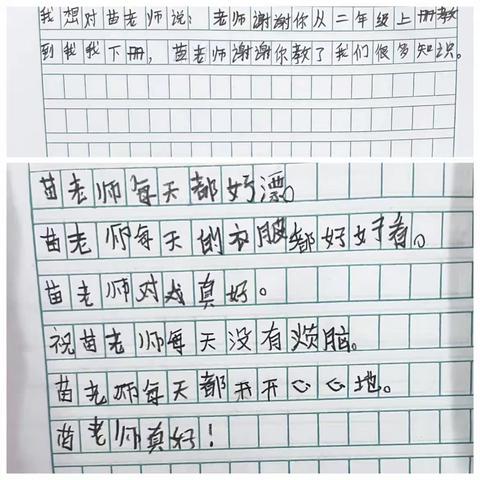 我想对苗老师说：老师谢谢你从二年级上册教
到我我下册，苗老师谢谢你教了我们很多知识。
苗老师每天都好漂。
苗老师每天的衣服都好好看。
苗老师对我真好。
祝苗老师每天没有烦脑。
苗老师每天都开开心心地。
苗老师真好！